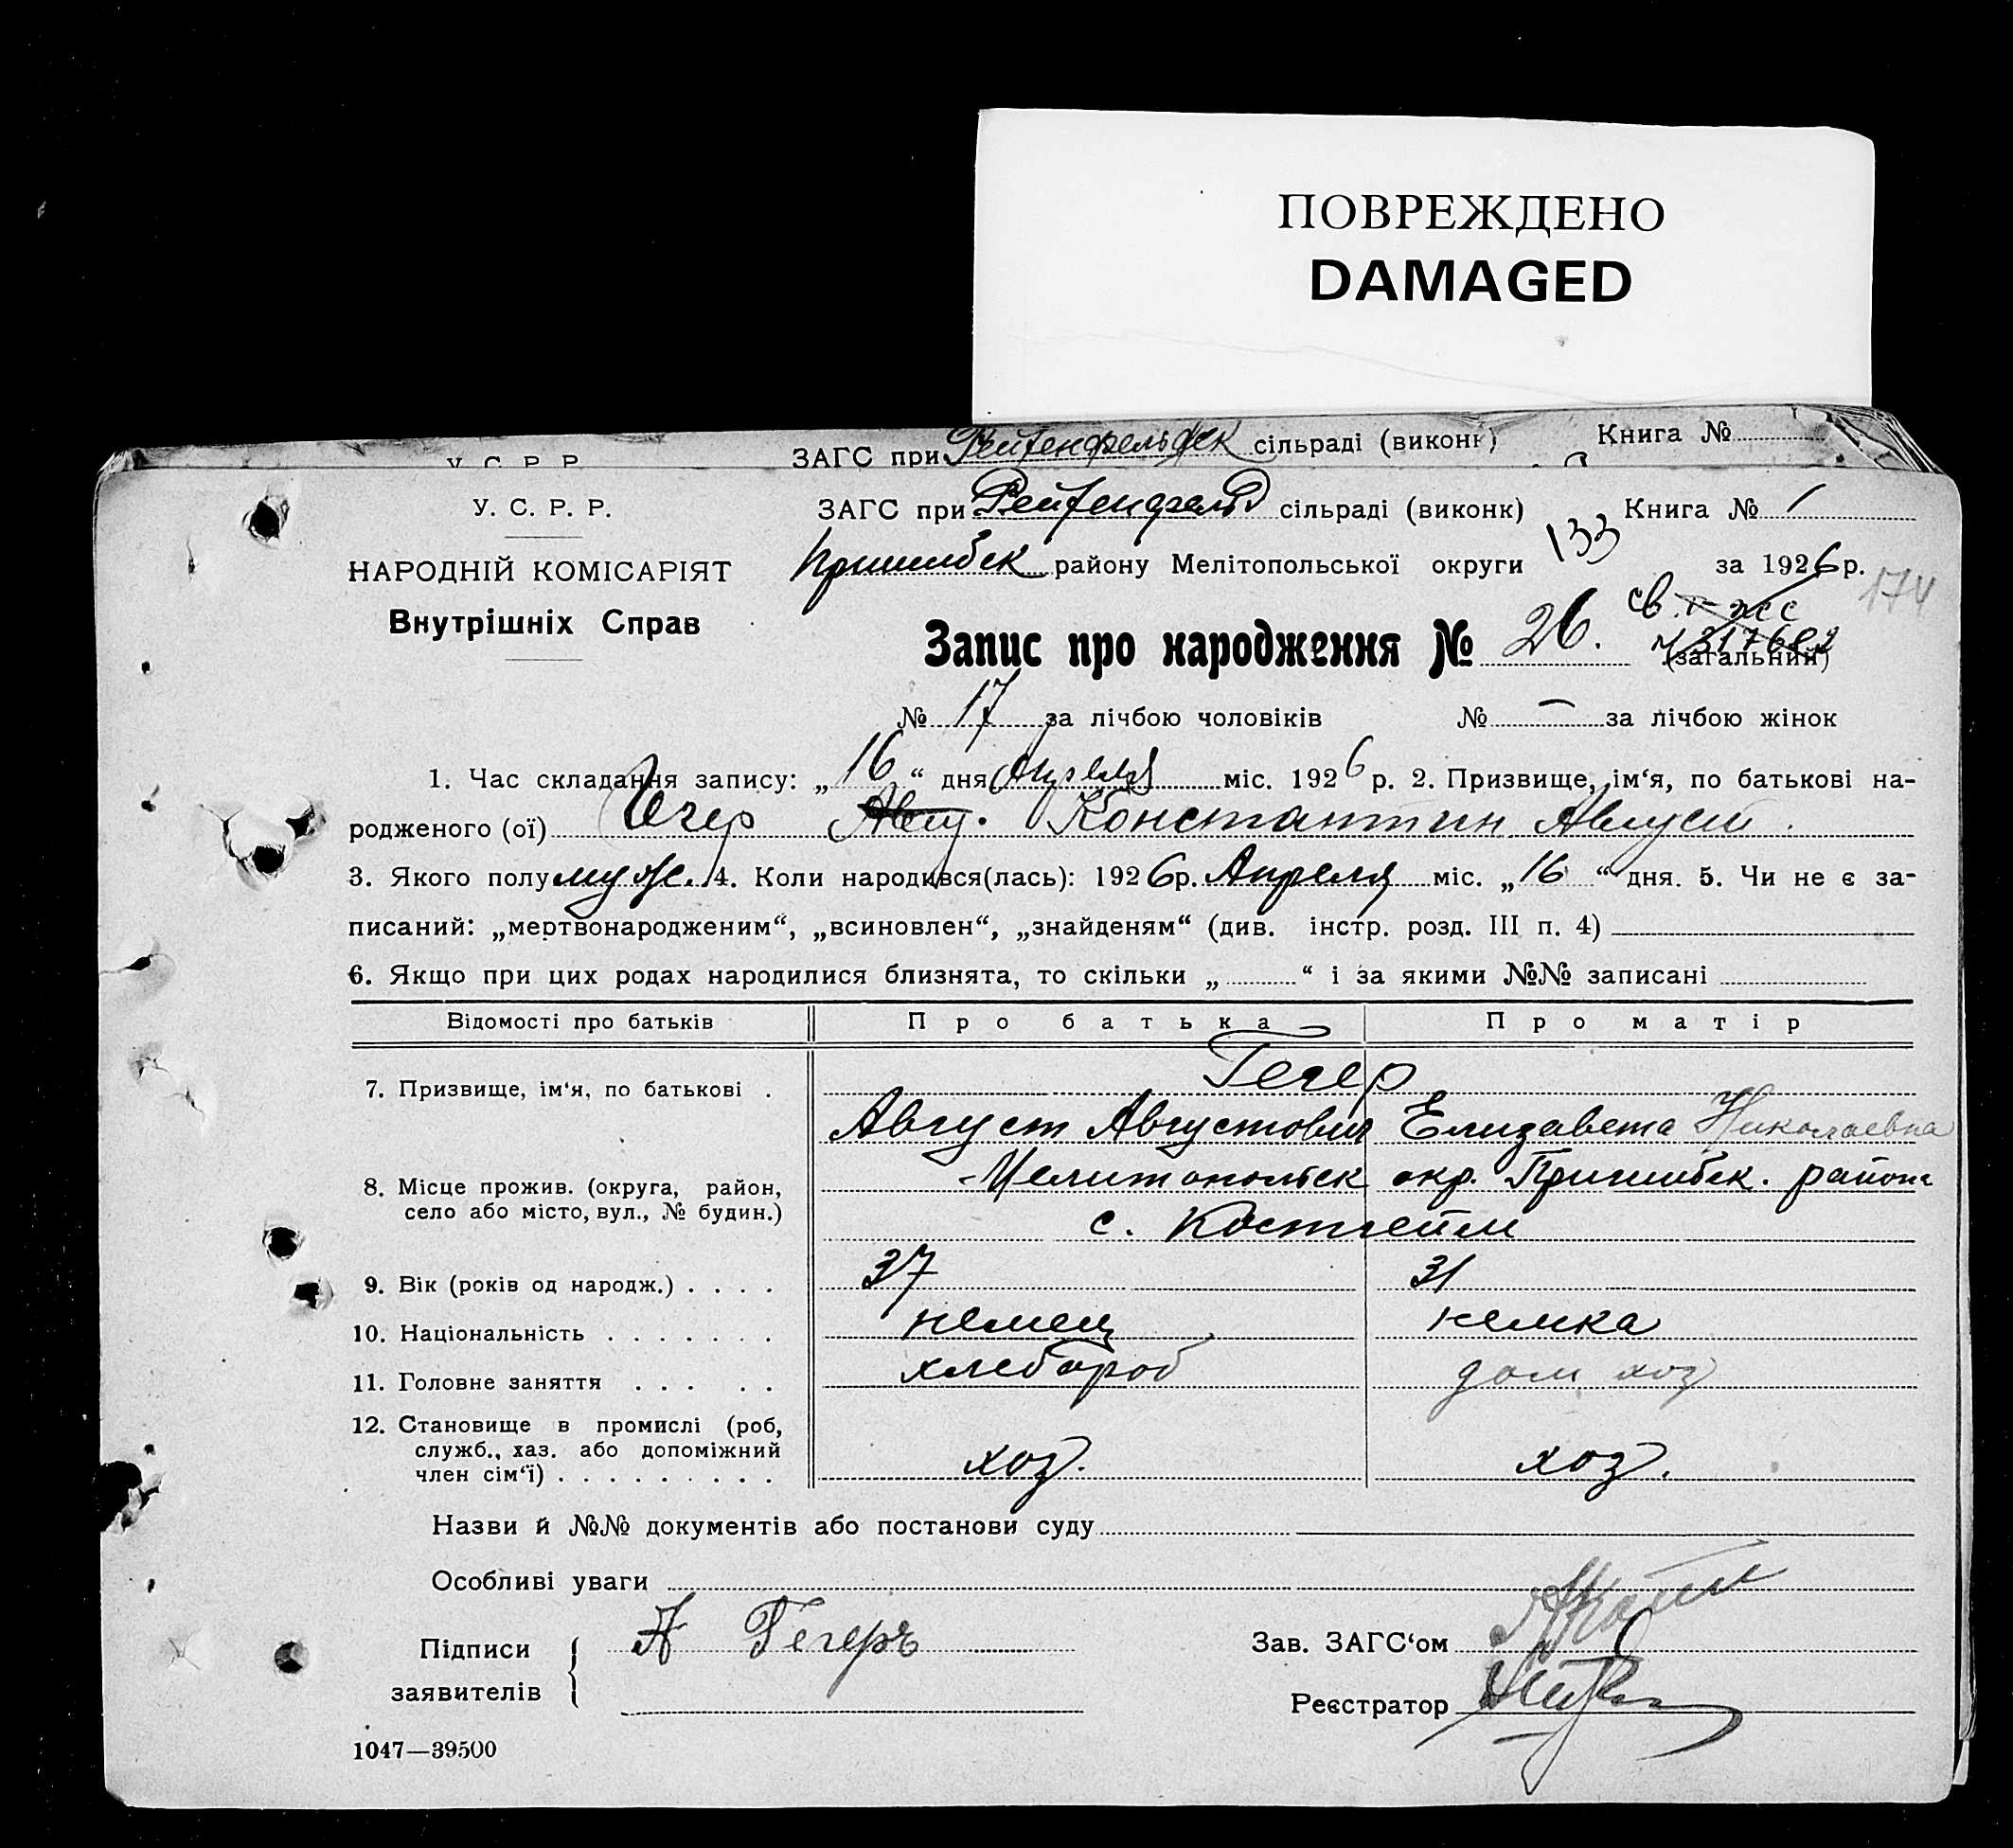 ПОВРЕЖДЕНО
DAMAGED
У. С. Р. Р. ЗАГС при Рейтенфельдск сільраді (викон Книга №
У. С. Р. Р. ЗАГС при Рейтенфельд сільраді (виконк) Книга № 1
НАРОДНІЙ КОМІСАРІЯТ Пришибск району Мелітопольської округи 133 за 1926 р.
174
Внутрішніх Справ
св
Запис про народження № 26. (загальний)
№ 17 за лічбою чоловіків № — за лічбою жінок
1. Час складання запису: „16“ дня Апреля міс. 1926 р. 2. Призвище, ім‘я, по батькові на-
родженого (ої) Гегер Авгу. Константин Август.
3. Якого полу муж. 4. Коли народився(лась): 1926 р. Апреля міс. „16“ дня. 5. Чи не є за-
писаний: „мертвонародженим“, „всиновлен“, „знайденям“ (див. інстр. розд. III п. 4)
6. Якщо при цих родах народилися близнята, то скільки „ “ і за якими №№ записані
Відомості про батьків Про батька Про матір
7. Призвище, ім‘я, по батькові . Гегер
Август Августович Елизавета Николаевна
8. Місце прожив. (округа, район, Мелитопольск окр. Пришибск. района
село або місто, вул., № будин.) с. Костгейм
9. Вік (років од народж.) . . . . 37 31
10. Національність . . . . . . . немец немка
11. Головне заняття . . . . . хлебороб дом хоз
12. Становище в промислі (роб,
служб., хаз. або допоміжний
член сім‘ї) . . . . . . . . . хоз. хоз.
Назви й №№ документів або постанови суду
Особливі уваги
Підписи А Гегеръ Зав. ЗАГС‘ом
заявителів Реєстратор
1047—39500